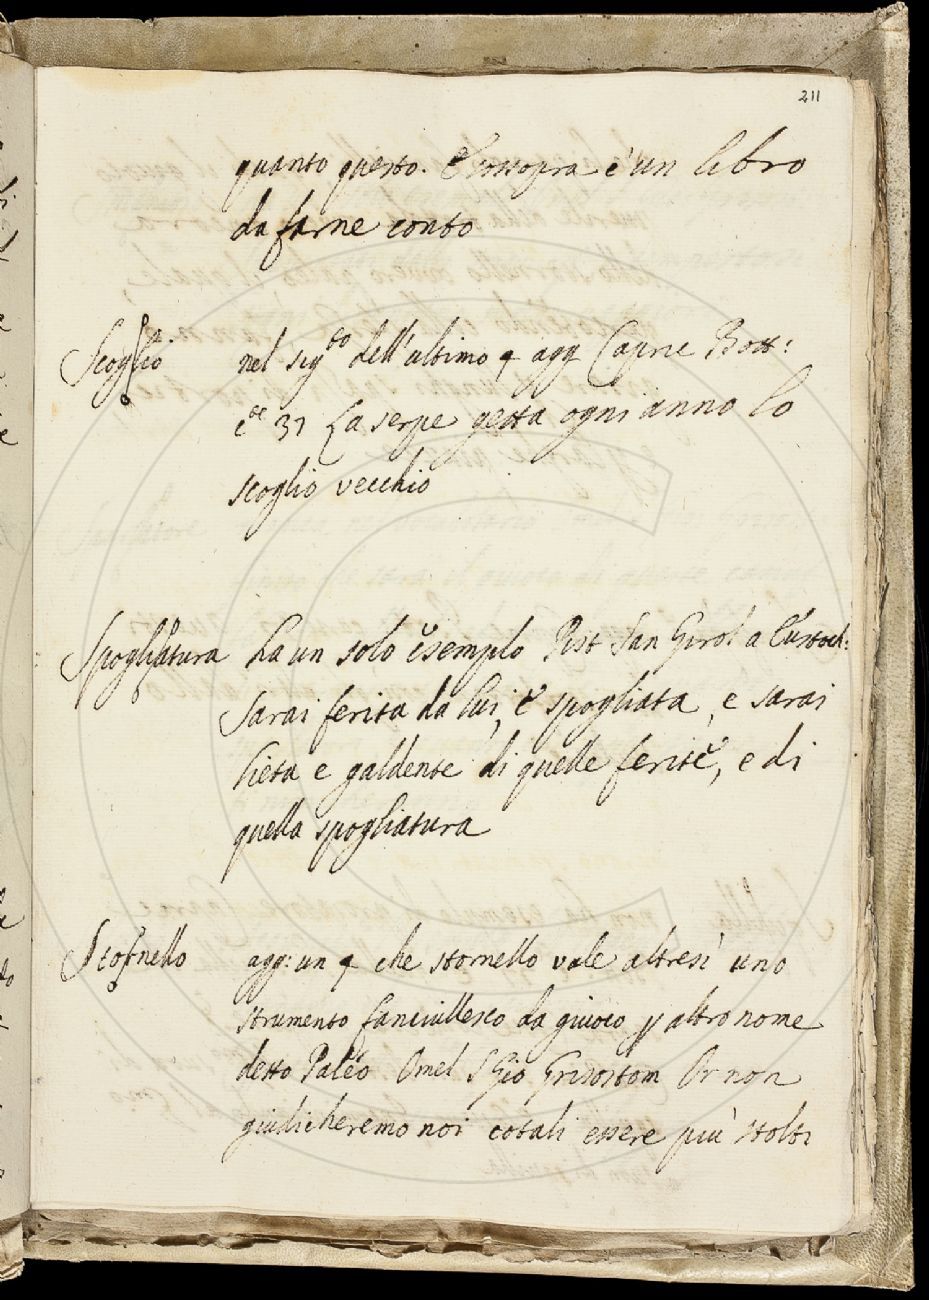 211
quanto questo. E sossopra è un libro
da farne conto
Scoglio nel sig.to dell'ultimo § agg Capre Bott:
c.te 37 La serpe getta ogni anno lo
scoglio vecchio
Spogliatura ha un solo esempio Pist San Girol: a Eustoch:
sarai ferita da lui, e spogliata, e sarai
lieta e galdente di quelle ferite, e di
quella spogliatura
Stornello agg: un § che stornello vale altresì uno
strumento fanciullesco da giuoco p altro nome
detto Paleo Omel S Gio Grisostom Or non
giudicheremo noi cotali essere più stolti